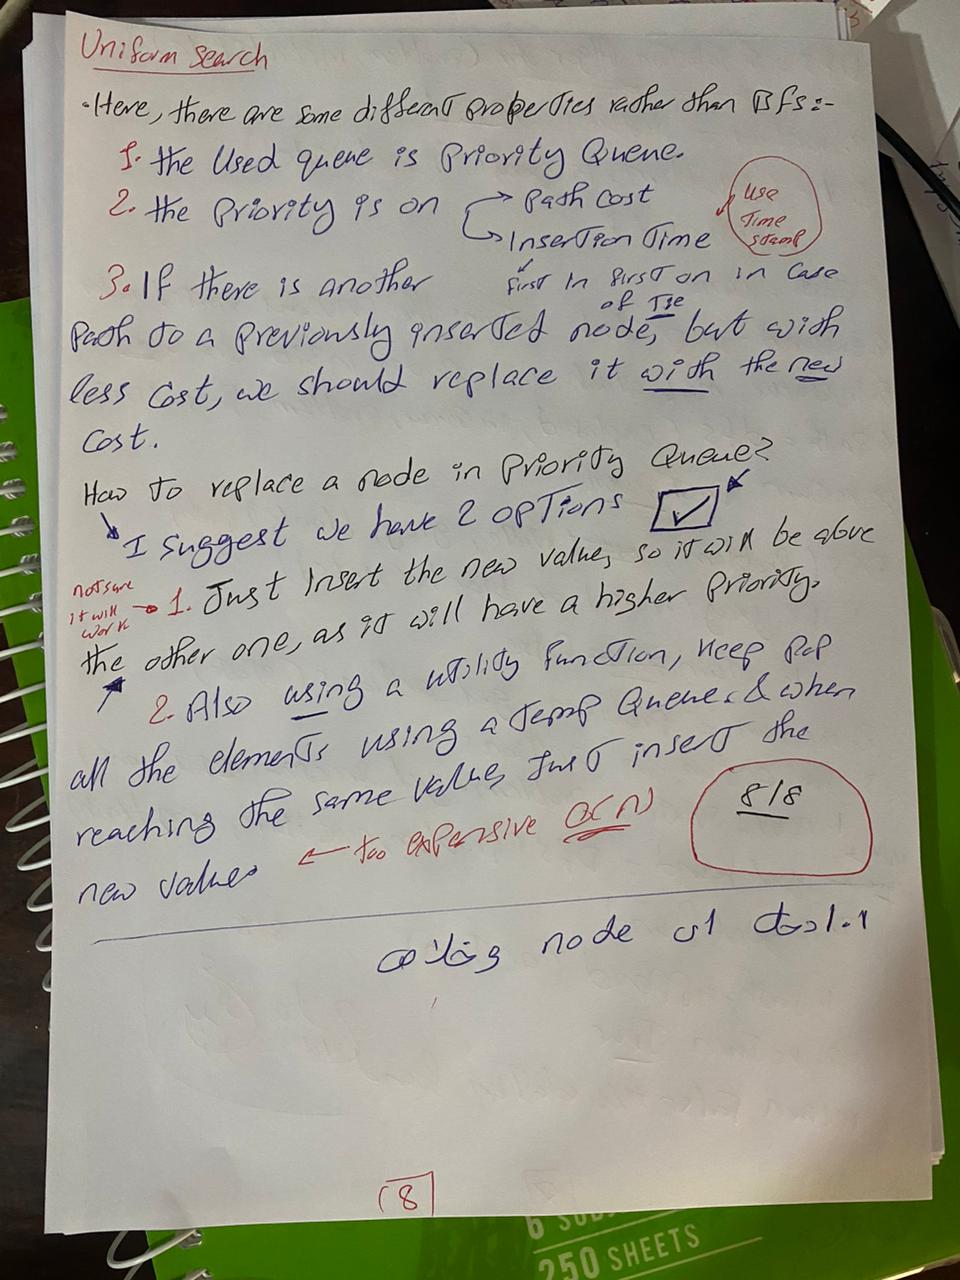 Uniform Search
• Here, there are some different properties rather than BFS:-
1. the Used queue is Priority Queue.
2. the Priority is on → Path Cost
→ Insertion Time
Use
Time
stamp
First In first on in Case
of Tie
3. If there is another
Path to a Previously inserted node, but with
less Cost, we should replace it with the new
Cost.
How to replace a node in Priority Queue?
I suggest we have 2 options
not sure
it will
work
1. Just Insert the new value, so it will be above
the other one, as it will have a higher Priority.
2. Also using a utility function, keep pop
all the elements using a temp Queue & when
reaching the same value, Just insert the
new value
← too expensive O(n)
8/8
node
8
6
250 SHEETS